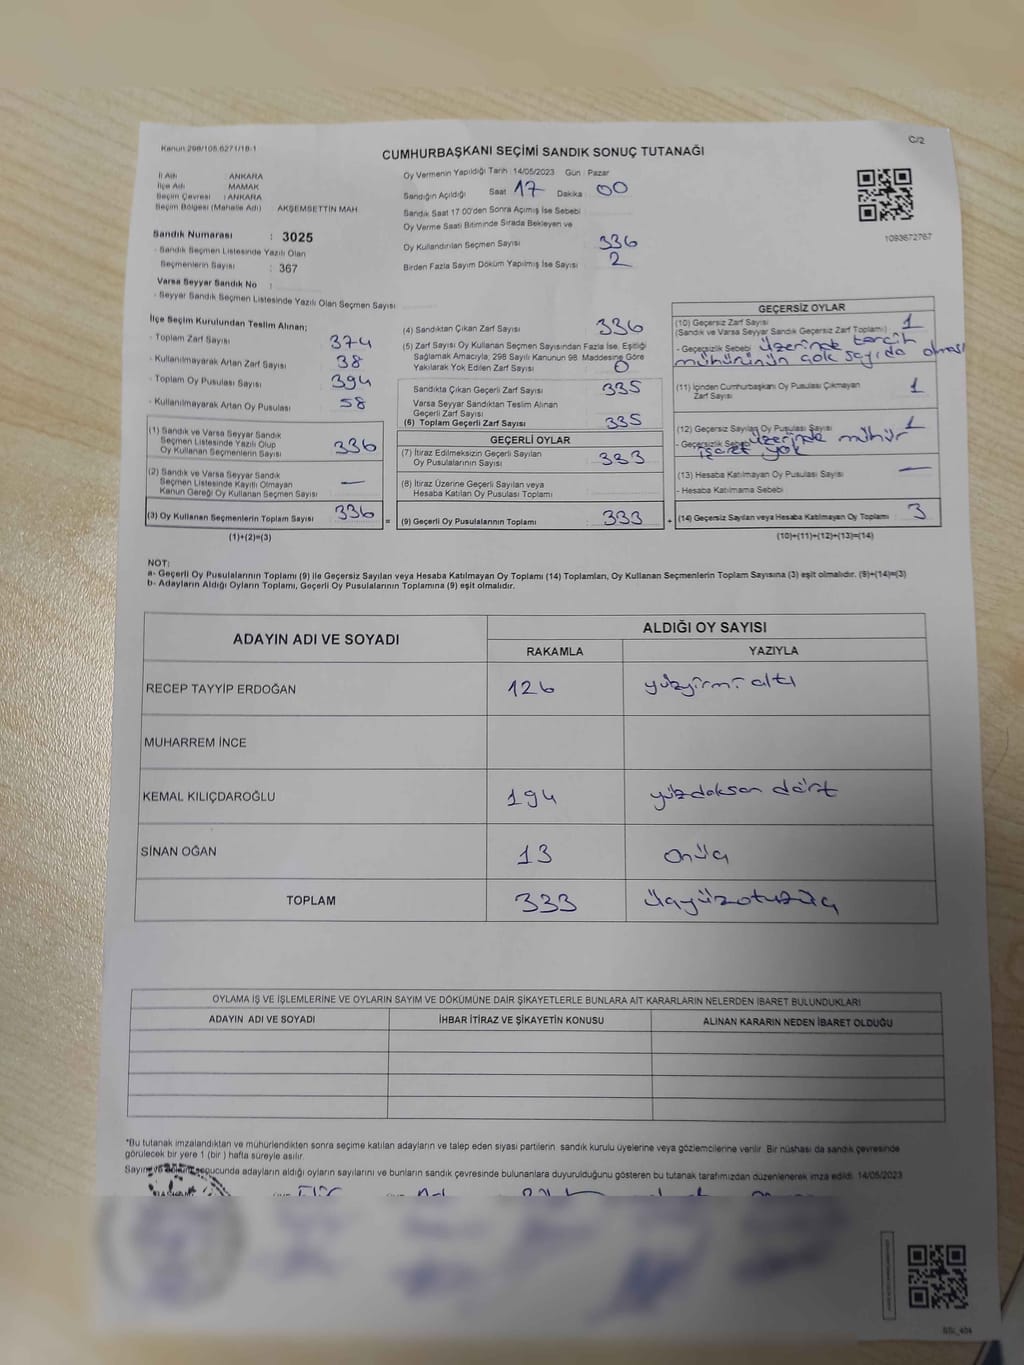 Kanun 298/105,6271/18-1
C/2
CUMHURBAŞKANI SEÇİMİ SANDIK SONUÇ TUTANAĞI
İl Adı : ANKARA
İlçe Adı : MAMAK
Seçim Çevresi : ANKARA
Seçim Bölgesi (Mahalle Adı) AKŞEMSETTİN MAH
Sandık Numarası : 3025
- Sandık Seçmen Listesinde Yazılı Olan
Seçmenlerin Sayısı : 367
Varsa Seyyar Sandık No :
- Seyyar Sandık Seçmen Listesinde Yazılı Olan Seçmen Sayısı
Oy Vermenin Yapıldığı Tarih : 14/05/2023 Gün : Pazar
Sandığın Açıldığı Saat 17 Dakika 00
Sandık Saat 17 00'den Sonra Açımış İse Sebebi
Oy Verme Saati Bitiminde Sırada Bekleyen ve
Oy Kullandırılan Seçmen Sayısı 336
Birden Fazla Sayım Döküm Yapılmış İse Sayısı 2
1093672767
İlçe Seçim Kurulundan Teslim Alınan;
- Toplam Zarf Sayısı 374
- Kullanılmayarak Artan Zarf Sayısı 38
- Toplam Oy Pusulası Sayısı 394
- Kullanılmayarak Artan Oy Pusulası 58
(1) Sandık ve Varsa Seyyar Sandık
Seçmen Listesinde Yazılı Olup
Oy Kullanan Seçmenlerin Sayısı 336
(2) Sandık ve Varsa Seyyar Sandık
Seçmen Listesinde Kayıtlı Olmayan
Kanun Gereği Oy Kullanan Seçmen Sayısı —
(3) Oy Kullanan Seçmenlerin Toplam Sayısı 336
(1)+(2)=(3)
(4) Sandıktan Çıkan Zarf Sayısı 336
(5) Zarf Sayısı Oy Kullanan Seçmen Sayısından Fazla İse, Eşitliği
Sağlamak Amacıyla, 298 Sayılı Kanunun 98. Maddesine Göre
Yakılarak Yok Edilen Zarf Sayısı 0
Sandıkta Çıkan Geçerli Zarf Sayısı 335
Varsa Seyyar Sandıktan Teslim Alınan
Geçerli Zarf Sayısı
(6) Toplam Geçerli Zarf Sayısı 335
GEÇERLİ OYLAR
(7) İtiraz Edilmeksizin Geçerli Sayılan
Oy Pusulasının Sayısı 333
(8) İtiraz Üzerine Geçerli Sayılan veya
Hesaba Katılan Oy Pusulası Toplamı
= (9) Geçerli Oy Pusulalarının Toplamı 333 +
GEÇERSİZ OYLAR
(10) Geçersiz Zarf Sayısı 1
(Sandık ve Varsa Seyyar Sandık Geçersiz Zarf Toplamı)
- Geçersizlik Sebebi üzerinde tercih
mühürünün çok sayıda olması
(11) İçinden Cumhurbaşkanı Oy Pusulası Çıkmayan
Zarf Sayısı 1
(12) Geçersiz Sayılan Oy Pusulası Sayısı 1
- Geçersizlik Sebebi üzerinde mühür
işaret yok
(13) Hesaba Katılmayan Oy Pusulası Sayısı —
- Hesaba Katılmama Sebebi
(14) Geçersiz Sayılan veya Hesaba Katılmayan Oy Toplamı 3
(10)+(11)+(12)+(13)=(14)
NOT:
a- Geçerli Oy Pusulalarının Toplamı (9) ile Geçersiz Sayılan veya Hesaba Katılmayan Oy Toplamı (14) Toplamları, Oy Kullanan Seçmenlerin Toplam Sayısına (3) eşit olmalıdır. (9)+(14)=(3)
b- Adayların Aldığı Oyların Toplamı, Geçerli Oy Pusulalarının Toplamına (9) eşit olmalıdır.
ADAYIN ADI VE SOYADI ALDIĞI OY SAYISI
RAKAMLA YAZIYLA
RECEP TAYYİP ERDOĞAN 126 yüzyirmi altı
MUHARREM İNCE
KEMAL KILIÇDAROĞLU 194 yüzdoksan dört
SİNAN OĞAN 13 onüç
TOPLAM 333 üçyüzotuzüç
OYLAMA İŞ VE İŞLEMLERİNE VE OYLARIN SAYIM VE DÖKÜMÜNE DAİR ŞİKAYETLERLE BUNLARA AİT KARARLARIN NELERDEN İBARET BULUNDUKLARI
ADAYIN ADI VE SOYADI İHBAR İTİRAZ VE ŞİKAYETİN KONUSU ALINAN KARARIN NEDEN İBARET OLDUĞU
*Bu tutanak imzalandıktan ve mühürlendikten sonra seçime katılan adayların ve talep eden siyasi partilerin sandık kurulu üyelerine veya gözlemcilerine verilir. Bir nüshası da sandık çevresinde
görülecek bir yere 1 (bir ) hafta süreyle asılır.
Sayım ve döküm sonucunda adayların aldığı oyların sayılarını ve bunların sandık çevresinde bulunanlara duyurulduğunu gösteren bu tutanak tarafımızdan düzenlenerek imza edildi. 14/05/2023